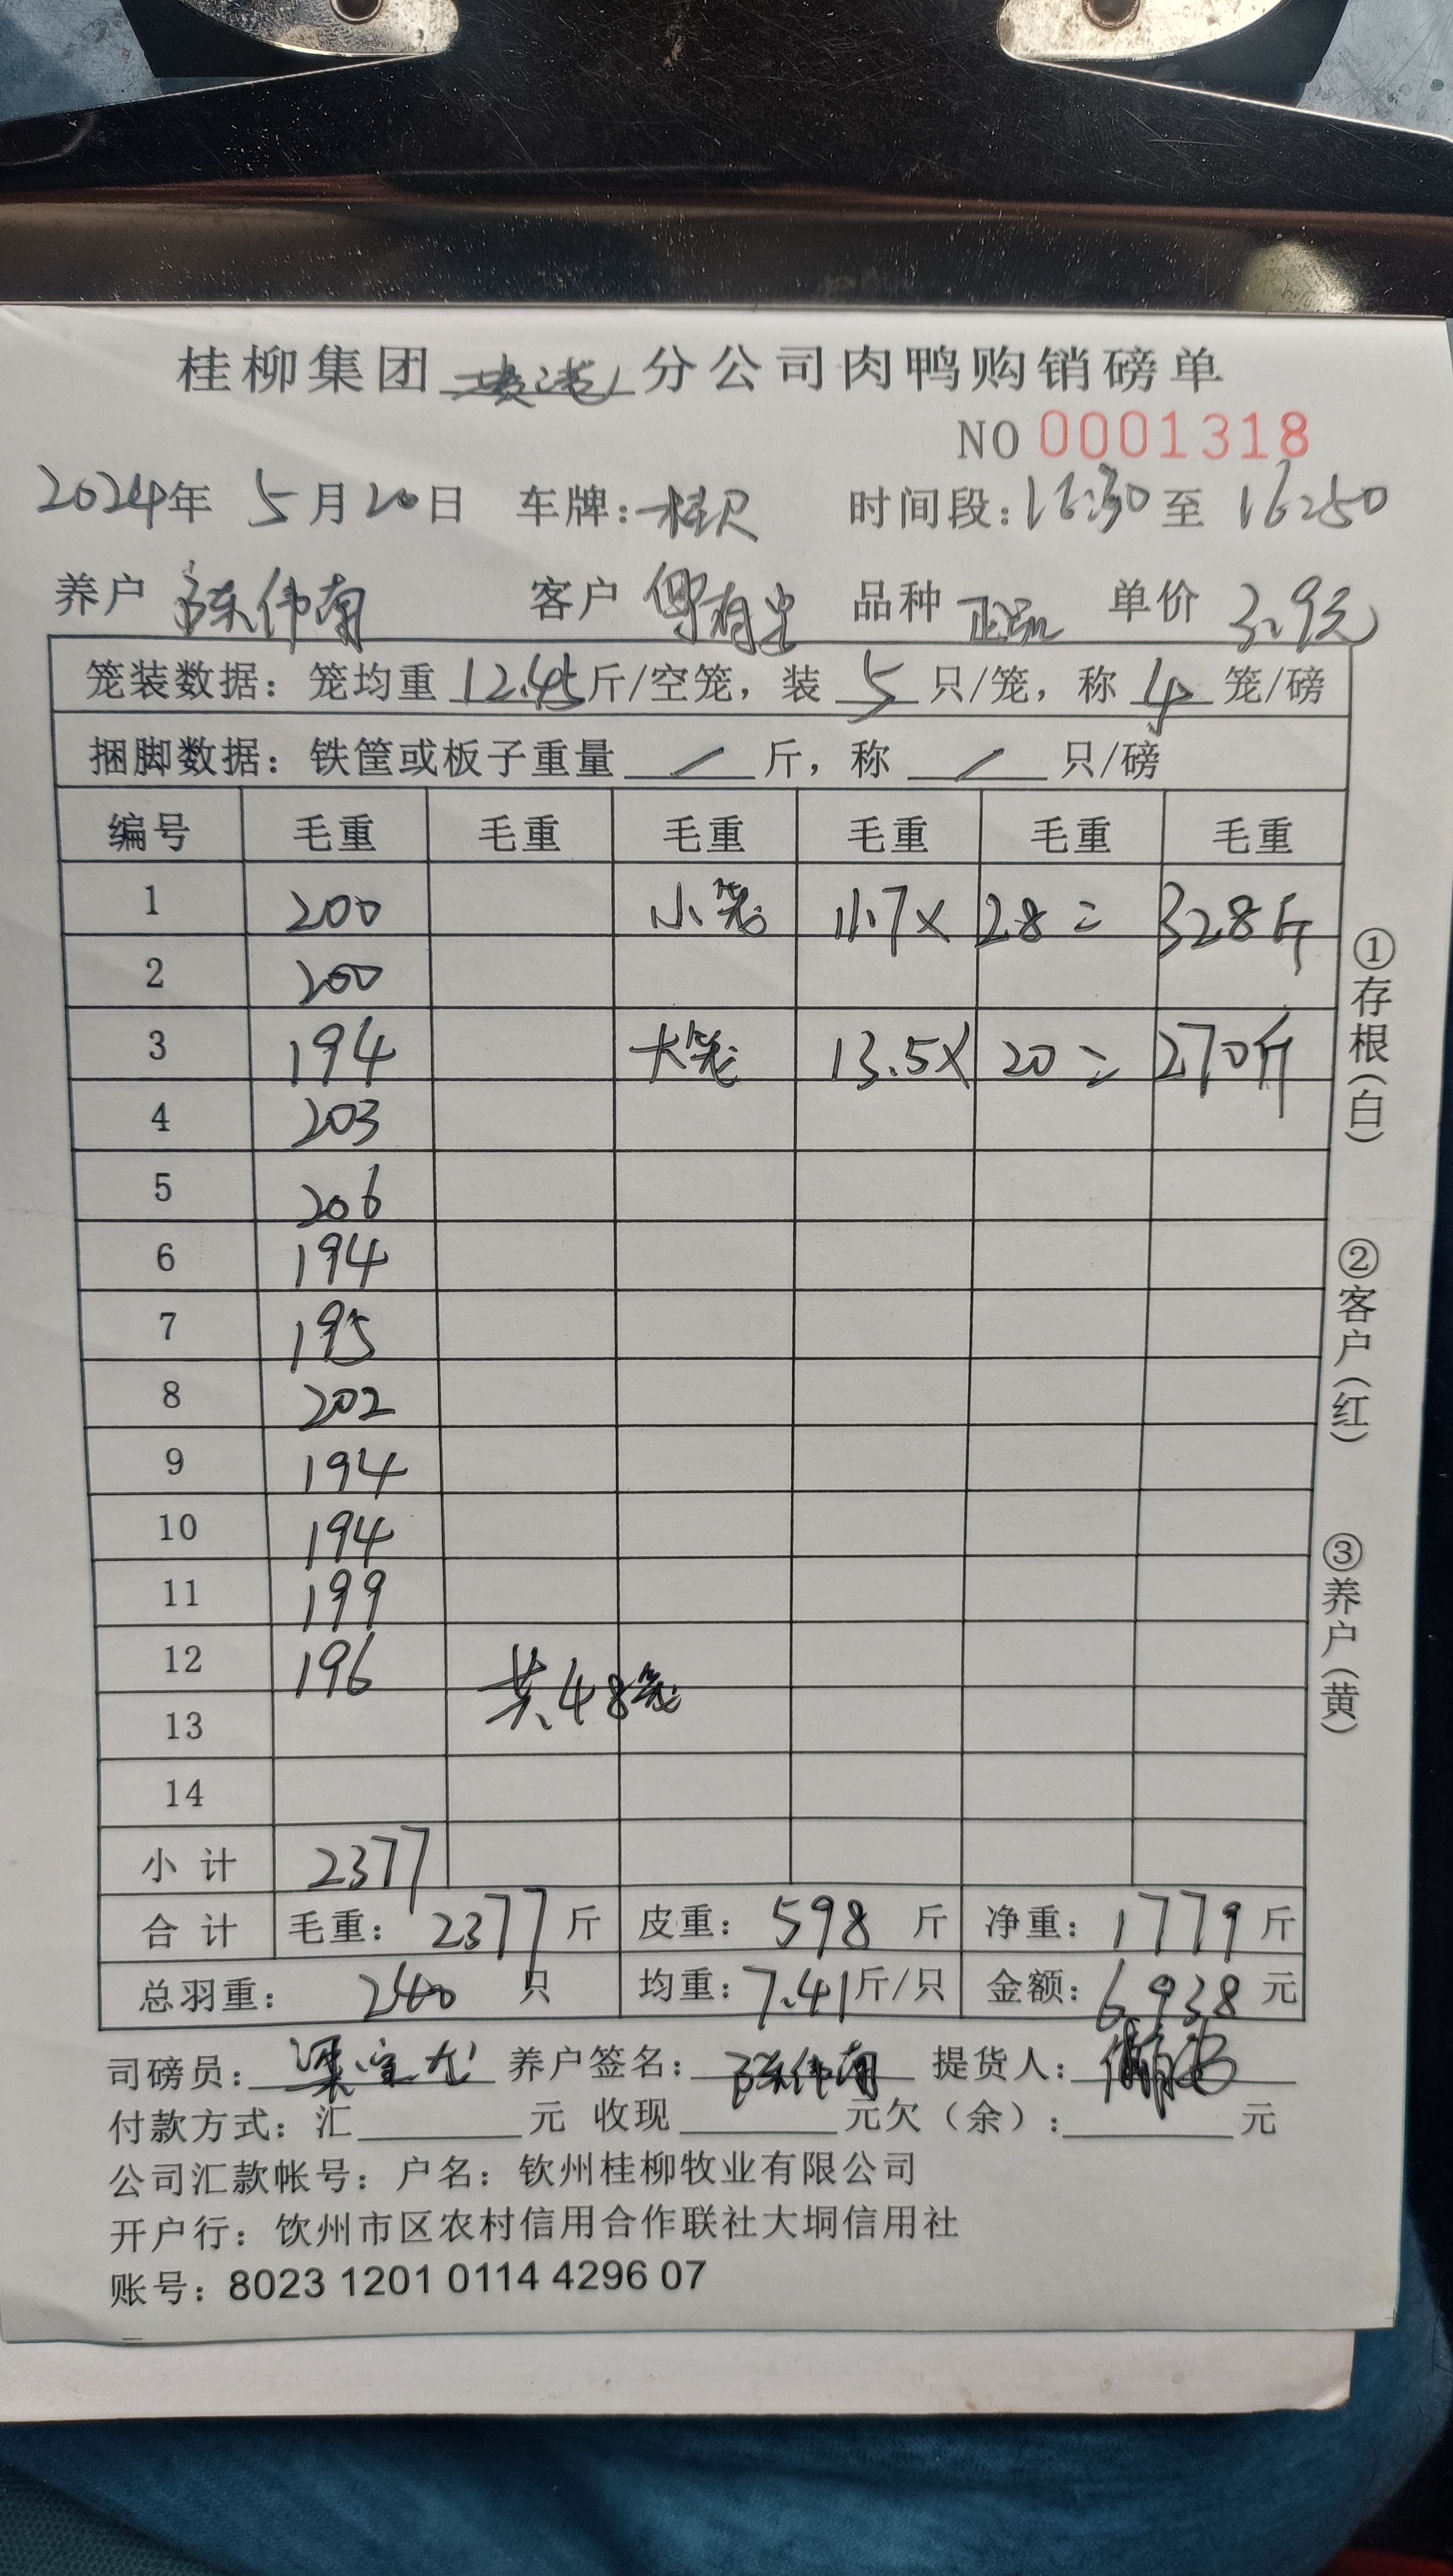 桂柳集团 分公司肉鸭购销磅单
NO 0001318
2024年 5月20日 车牌: 时间段:16:30 至 16:50
养户 陈伟南 客户 品种 正品 单价 3.9元
笼装数据: 笼均重 12.45 斤/空笼, 装 5 只/笼, 称 4 笼/磅
捆脚数据: 铁筐或板子重量 / 斤, 称 / 只/磅
编号 毛重 毛重 毛重 毛重 毛重 毛重
1 200 小笼 11.7× 28= 328斤
2 200
3 194 大笼 13.5× 20= 270斤
4 203
5 206
6 194
7 195
8 202
9 194
10 194
11 199
12 196 共48笼
13
14
小 计 2377
合 计 毛重: 2377 斤 皮重: 598 斤 净重: 1779 斤
总羽重: 240 只 均重: 7.41斤/只 金额: 6938 元
司磅员: 养户签名: 陈伟南 提货人:
付款方式: 汇 元 收现 元欠(余): 元
公司汇款帐号: 户名: 钦州桂柳牧业有限公司
开户行: 饮州市区农村信用合作联社大垌信用社
账号: 8023 1201 0114 4296 07
①存根(白)
②客户(红)
③养户(黄)